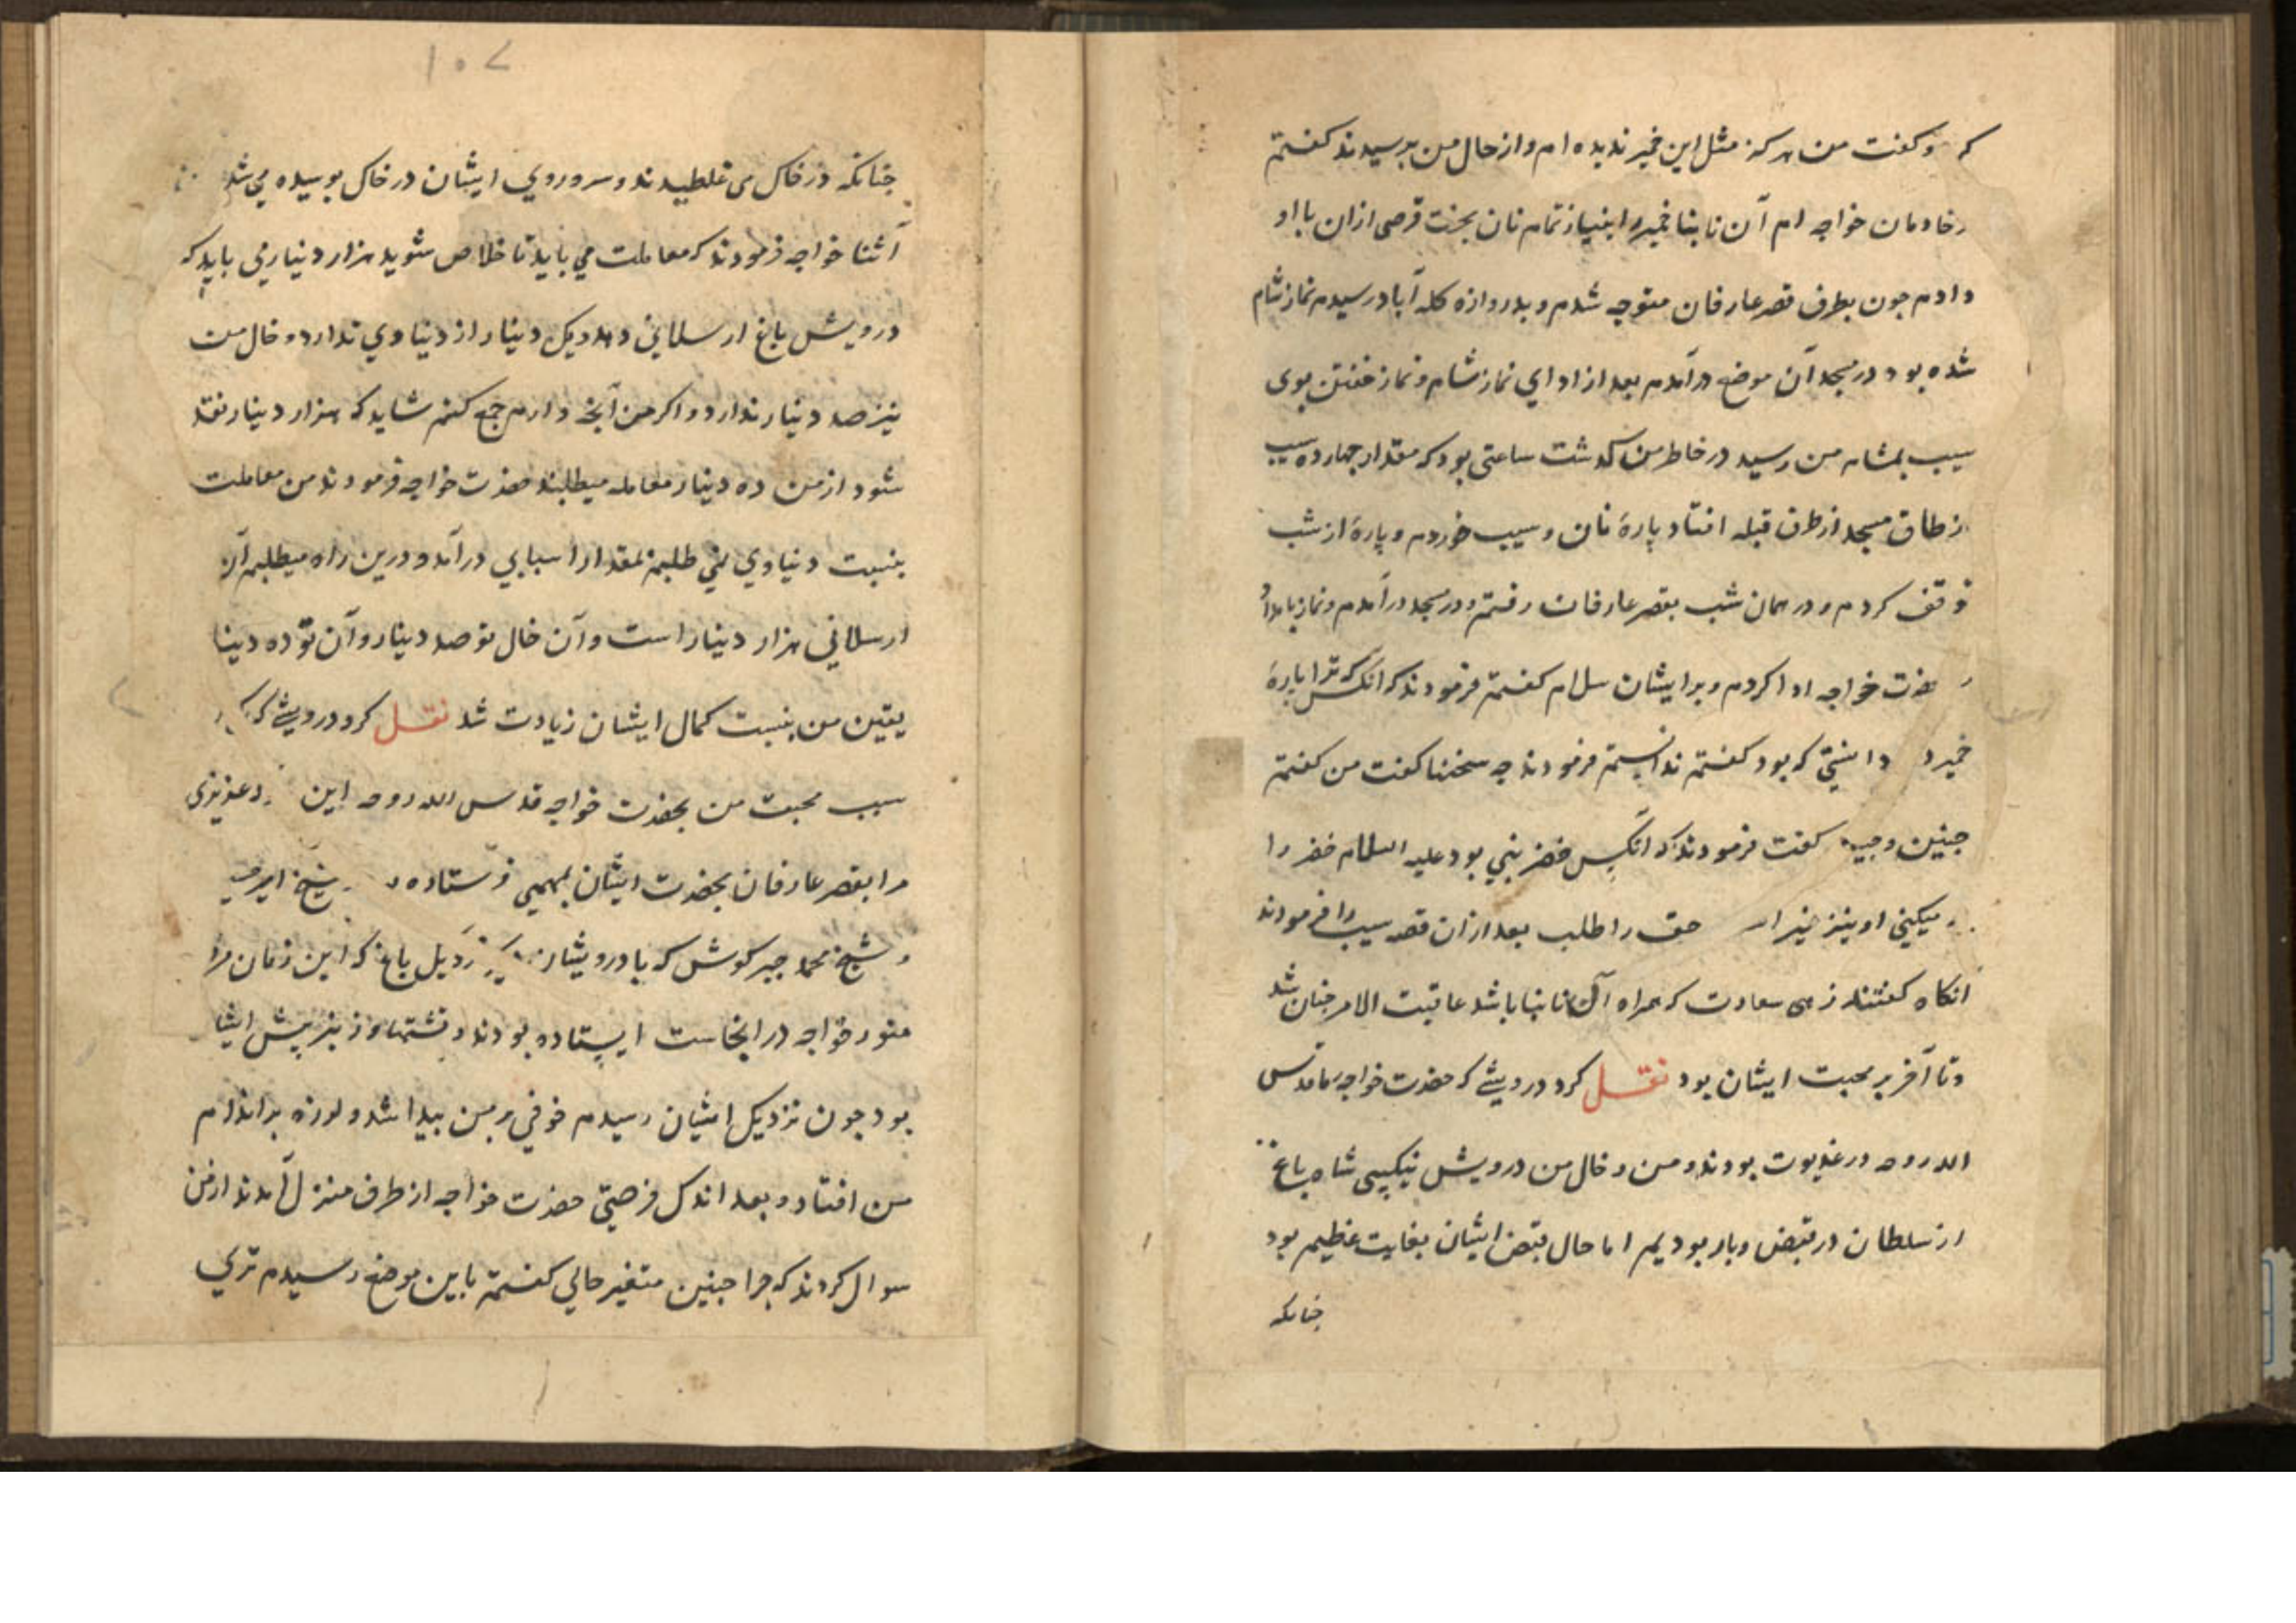 که و گفت من هرگز مثل این خمیر ندیده ام و از حال من پرسیدند گفتم
خادمان خواجه ام آن نابینا خمیر را بنیاز تمام نان پخت قرصی ازان با او
دادم چون بطرف قصر عارفان متوجه شدم و بدروازه کله آباد رسیدم نماز شام
شده بود در مسجد آن موضع درآمدم بعد از ادای نماز شام و نماز خفتن بوی
سیب بمشام من رسید در خاطر من گذشت ساعتی بود که مقدار چهارده سیب
از طاق مسجد از طرف قبله افتاد پارهٔ نان و سیب خوردم و پارهٔ از شب
توقف کردم و در همان شب بقصر عارفان رفتم و در مسجد درآمدم و نماز بامداد
حضرت خواجه ادا کردم و بر ایشان سلام گفتم فرمودند که آنکس که ترا پارهٔ
خمیر د دانستی که بود گفتم ندانستم فرمودند چه سخنها گفت من گفتم
چنین و چنین گفت فرمودند که آنکس خضر نبی بود علیه السلام خضر را
میکنی او نیز حق را طلب بعد ازان قصه سیب را فرمودند
آنگاه گفتند زهی سعادت که همراه آن نابینا باشد عاقبت الامر چنان شد
و تا آخر بر محبت ایشان بود نقل کرد درویشی که حضرت خواجه ما قدس
الله روحه در غدیوت بودند و من و خال من درویش نیکپی شاه باغ
ارسلطان در قبض و بار بودیم اما حال قبض ایشان بغایت عظیم بود
چنانکه
۱۰۷
چنانکه در خاک می غلطیدند و سر و روی ایشان در خاک بوسیده می شد
اثنا خواجه فرمودند که معاملت می باید تا خلاص شوید هزار دینار می باید که
درویش باغ ارسلانی دهد و یک دینار از دنیاوی ندارد و خال من
نیز صد دینار ندارد و اگر من آنچه دارم جمع کنم شاید که هزار دینار نقد
شود از من ده دینار معامله میطلبند حضرت خواجه فرمودند من معاملت
بنسبت دنیاوی نمی طلبم بمقدار اسبابی درآمد و درین راه میطلبم آن
ارسلانی هزار دینار است و آن خال تو صد دینار و آن تو ده دینار
یقین من بنسبت کمال ایشان زیادت شد نقل کرد درویشی که
سبب محبت من بحضرت خواجه قدس الله روحه این عزیزی
مرا بقصر عارفان بحضرت ایشان بمهمی فرستاده شیخ امیر
و شیخ محمد چیرگوش که با درویشان باغ که این زمان مزار
منور خواجه در انجاست ایستاده بودند و نیز پیش ایشان
بود چون نزدیک ایشان رسیدم خوفی بر من پیدا شد و لرزه بر اندام
من افتاد و بعد اندک فرصتی حضرت خواجه از طرف منزل آمدند از من
سوال کردند که چرا چنین متغیر حالی گفتم باین موضع رسیدم ترسی